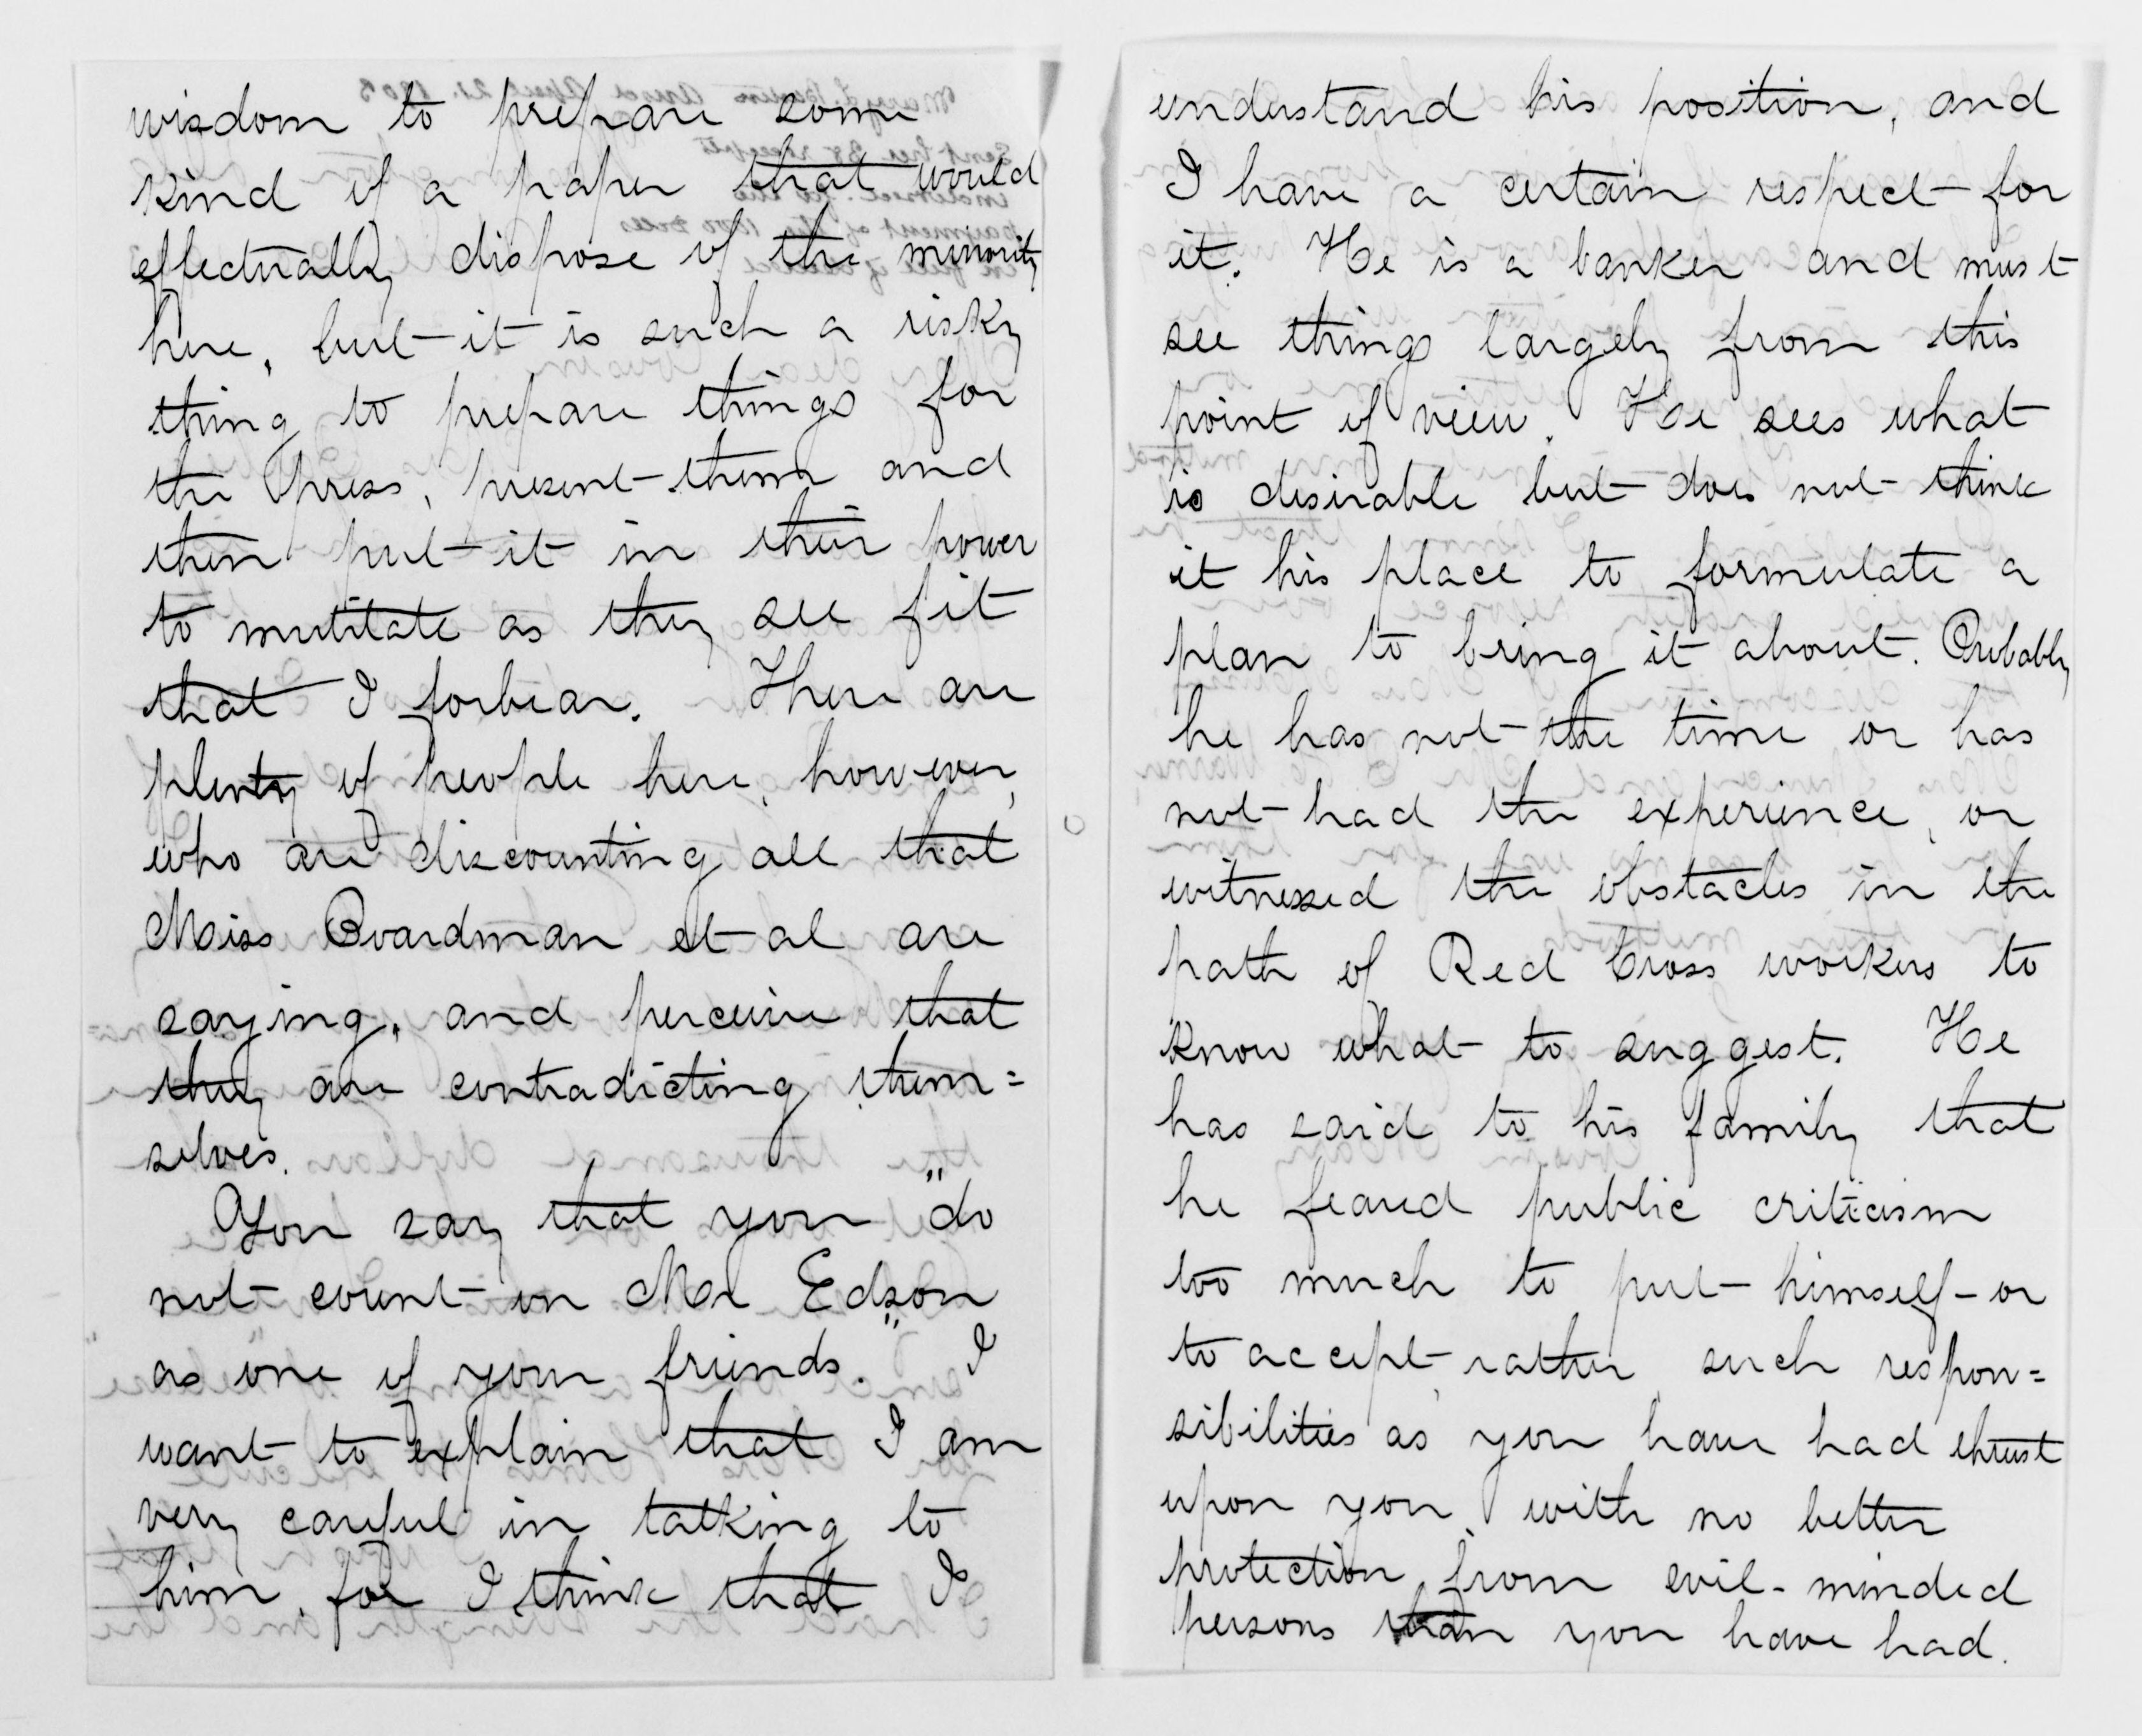 wisdom to prepare some
kind of a paper that would
effectually dispose of the minority
here, but it is such a risky
thing to prepare things for
the press, present them and
then put it in their power
to mutilate as they see fit
that I forbear. There are
plenty of people here, however,
who are discounting all that
Miss Boardman et al are
saying, and perceive that
they are contradicting them=
selves.
You say that you "do
not count on Mr Edson
as one of your friends." I
want to explain that I am
very careful in talking to
him, for I think that I
understand his position, and
I have a certain respect for
it. He is a banker and must
see things largely from this
point of view. He sees what
is desirable but does not think
it his place to formulate a
plan to bring it about. Probably
he has not the time or has
not had the experience, or
witnessed the obstacles in the
path of Red Cross workers to
know what to suggest. He
has said to his family that
he feared public criticism
too much to put himself - or
to accept, rather, such respon=
sibilities as you have had thrust
upon you, with no better
protection from evil-minded
persons than you have had.